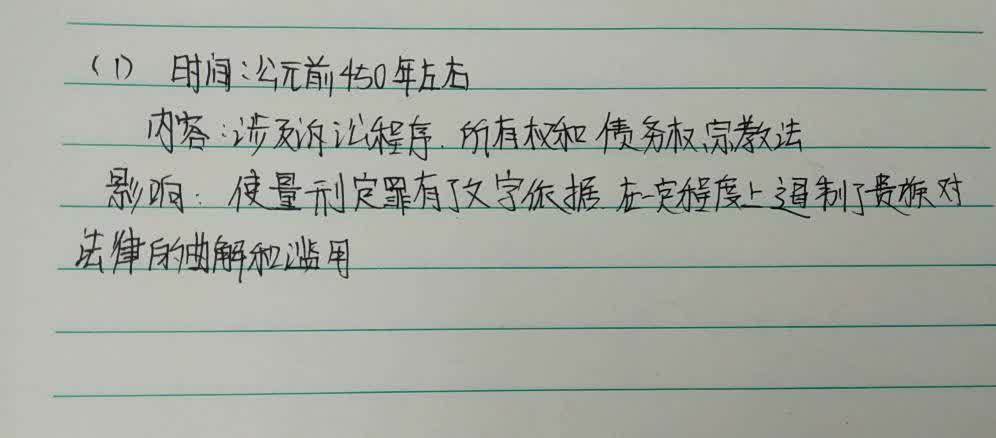 （1） 时间：公元前450年左右
内容：涉及诉讼程序、所有权和债务权、宗教法
影响：使量刑定罪有了文字依据 在一定程度上遏制了贵族对
法律的曲解和滥用